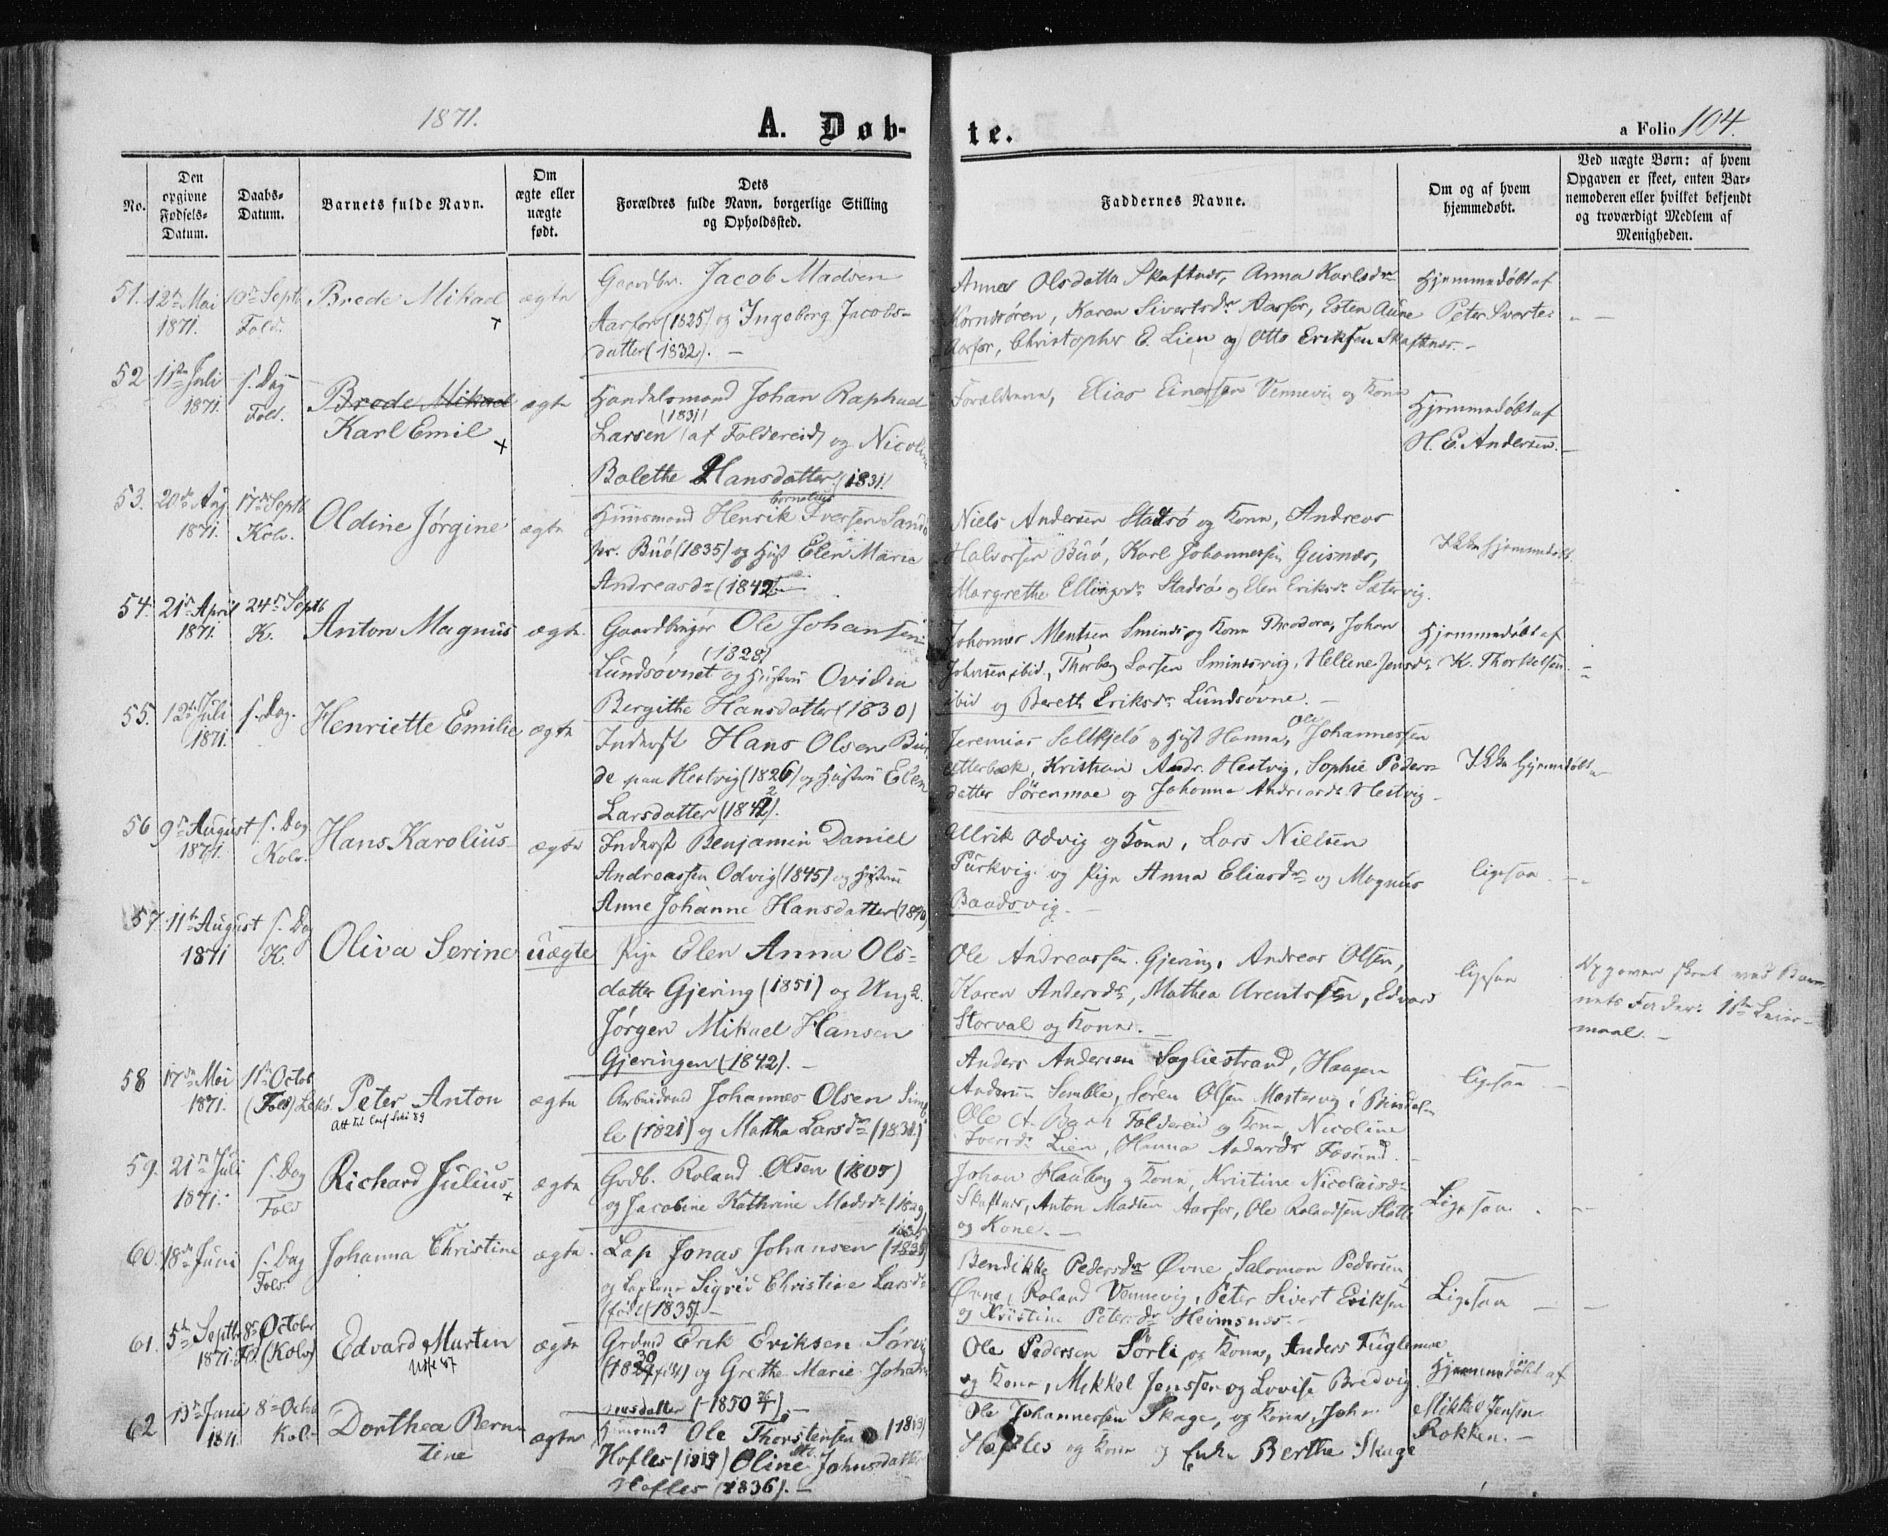 1871.
A. Døb-
te.
a Folio 104.
No.
Den opgivne Fødsels-Datum.
Daabs-Datum.
Barnets fulde Navn.
Om ægte eller uægte født.
Dets
Forældres fulde Navn, borgerlige Stilling
og Opholdssted.
Faddernes Navne.
Om og af hvem
hjemmedøbt.
Ved uægte Børn: af hvem
Opgaven er skeet, enten Bar-
nemoderen eller hvilket bekjendt
og troværdigt Medlem af
Menigheden.
51. 12te Mai 1871. 10de Septb Fold. Brede Mikael ægte
Gaardbr. Jacob Madsen
Aarfor (1825) og Ingeborg Jacobs-
datter (1832). —
Anna Olsdatter Skaftnæs, Anna Karlsdr
Kornsøren, Karen Sivertsdr Aarfor, Esten Aune
Aarfor, Christopher E. Lien og Otto Eriksen Skaftnæs. —
Hjemmedøbt af
Peter Svarte
52 11te Juli 1871. s. Dag Fold. Brede Mikael
Karl Emil ægte
Handelsmand Johan Raphael
Larsen (1831) (af Foldereid) og Nicoline
Balethe Hansdatter (1831)
Forældrene, Elias Einersen Vennevig og Kone
Hjemmedøbt af
H. E. Andersen. —
53. 20de Aug 1871. 17de Septb Kolv. Oldine Jørgine ægte
Huusmand Henrik Cornelius Iversen Sand
pr. Buø (1835) og Hust Elen Marie
Andreasdr (1842)
Niels Andersen Stadsø og Kone, Andreas
Halvorsen Buø, Karl Johannessen Geisnæs,
Margrethe Ellingsdr Stadsø og Elen Eriksdr Sætervig.
Ikke hjemmedøbt.
54. 21de April 1871. 24de Septb K. Anton Magnus ægte
Gaardbruger Ole Johansen
(1828)
Lundsøvnet og Hustru Ovidia
Bergithe Hansdatter (1830)
Johannes Mentsen Sminds og Kone Theodora, Johan
Johansen ibid, Thorberg Larsen Smindsvig, Hellene Jensdr
ibid og Bereth Eriksdr Lundsøvne. —
Hjemmedøbt af
K. Thorkelsen.
55. 12te Juli 1871. s. Dag. Henriette Emilie ægte
Inderst Hans Olsen Bur
de paa Hestvig (1826) og Hustru Elen
Larsdatter (1842).
Jeremias Salkjelø og Hust Hanna, Ole Johannessen
Otterbæk, Kristian Andr. Hestvig, Sophie Peders-
datter Sørenmoe og Johanna Andreasdr Hestvig —
Ikke Hjemmedøbt
56 9de August 1871. s. Dag Kolv. Hans Karolius ægte
Inderst Benjamin Daniel
Andreassen Odvig (1845) og Hustru
Anne Johanne Hansdatter (1840)
Ulrik Odvig og Kone, Lars Nielsen
Purkvig og Pige Anna Eliasdr og Magnus
Baadsvig. —
ligesaa.
57. 11te August 1871 s. Dag K. Oliva Serine uægte
Pige Elen Anna Ols-
datter Gjering (1851) og Ung.
Jørgen Mikael Hansen
Gjeringen (1842). —
Ole Andreassen Gjering, Andreas Olsen,
Karen Andersdr, Mathea Arentsen, Edvard
Storval og Kone. —
ligesaa
Opgaven skeet ved Bar-
nets Fader: 1ste Leier-
maal. —
58 17de Mai 1871. 11te Octob (Fold) Lekø. Peter Anton ægte
Att til Conf Lekø 89
Arbeidsmd Johannes Olsen Semb
le (1821) og Martha Larsdr (1831)
Anders Andersen Sagliestrand, Haagen
Andersen Semble, Søren Olsen Mastervig i Bindalen
Ole A. Foldereid og Kone, Nicoline
Iversdr Lien, Hanna Andersdr Fosund. —
ligesaa
59. 21de Juli 1871. s. Dag Fold Richard Julius ægte
Grdb. Roland Olsen (1805)
og Jacobine Kathrine Madsdr (1829)
Johan Hauberg og Kone, Kristine Nicolaisdr
Skaftnæs, Anton Madsen Aarfor, Ole Rolandsen Slotte
og Kone. —
Ligesaa
60. 18de Juni s. Dag Fold. Johanna Christine ægte.
Lap Jonas Johansen
og Lapkone Sigrid Christine Larsdr
født (1835). —
Bendikke Pedersdr Øvne, Salomon Pedersen
Øvne, Roland Vennevig, Peter Sivert Eriksen
og Kristine Petersdr Heimsnæs. —
Ligesaa
61. 5te Septb 1871. 8de October Fd. (Kolv) Edvard Martin ægte
Grdmd Erik Eriksen Sørvig
og Grethe Marie Johan-
nesdatter (1850). —
Ole Pedersen Sørli og Kone, Anders Fuglemoe
og Kone, Mikkel Jenssen og Lovise Bredvig
Hjemmedøbt af
Mikkel Jensen
Rokken. —
62 13de Juni 1871 8de Octb Kolv Dorthea Bern-
tine ægte
Husmd Ole Thorstensen (1813)
Hofles (1813) Oline Johnsdatter
Hofles (1836). —
Ole Johannessen Skage, og Kone, John
Hofles og Kone og Enke Berthe Skage